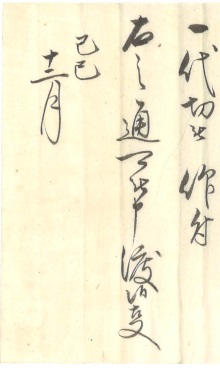 一代切ニ作付
右之通可申渡候事
己巳
十二月